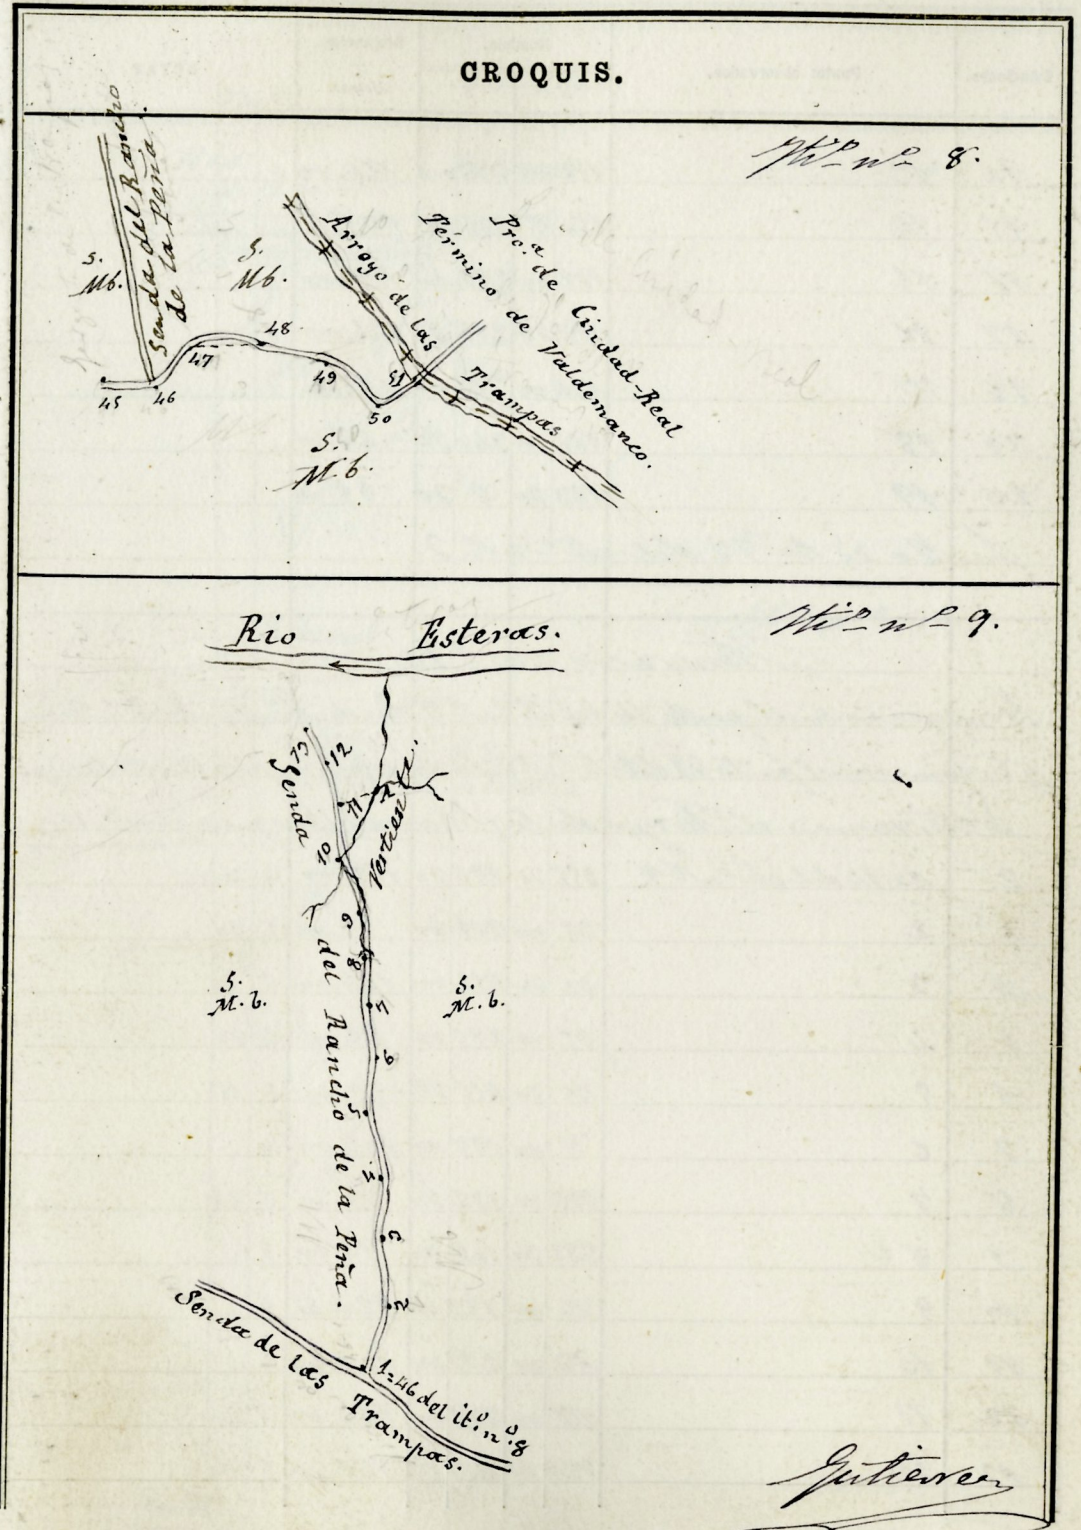 CROQUIS.
Itº nº 8.
Senda del Rancho
de la Peña.
S.
Mb.
S.
Mb.
Arroyo de las
Trampas
Término de Valdemanco.
Pro.ª de Ciudad-Real
45
46
47
48
49
50
51
S.
M.b.
Itº nº 9.
Rio Esteras.
Senda del Rancho de la Peña.
Vertiente.
12
11
10
9
8
6
5
3
2
S.
M.b.
S.
M.b.
1=46 del itº. nº. 8
Senda de las Trampas.
Gutierrez